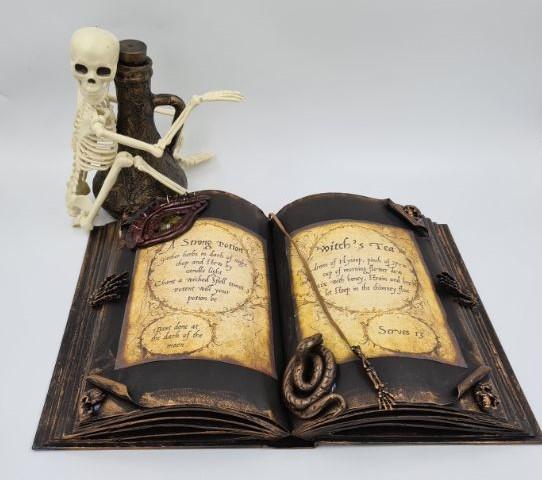 A Strong Potion
Gather herbs in dark of night
chop and stew by
candle light
Chant a wicked spell times
potent will your
potion be
Best done at
the dark of the
moon
Witch's Tea
drams of Hyssop, pinch of
cup of morning flower dew
with honey, Strain and
to Steep in the chimney
Serves 13